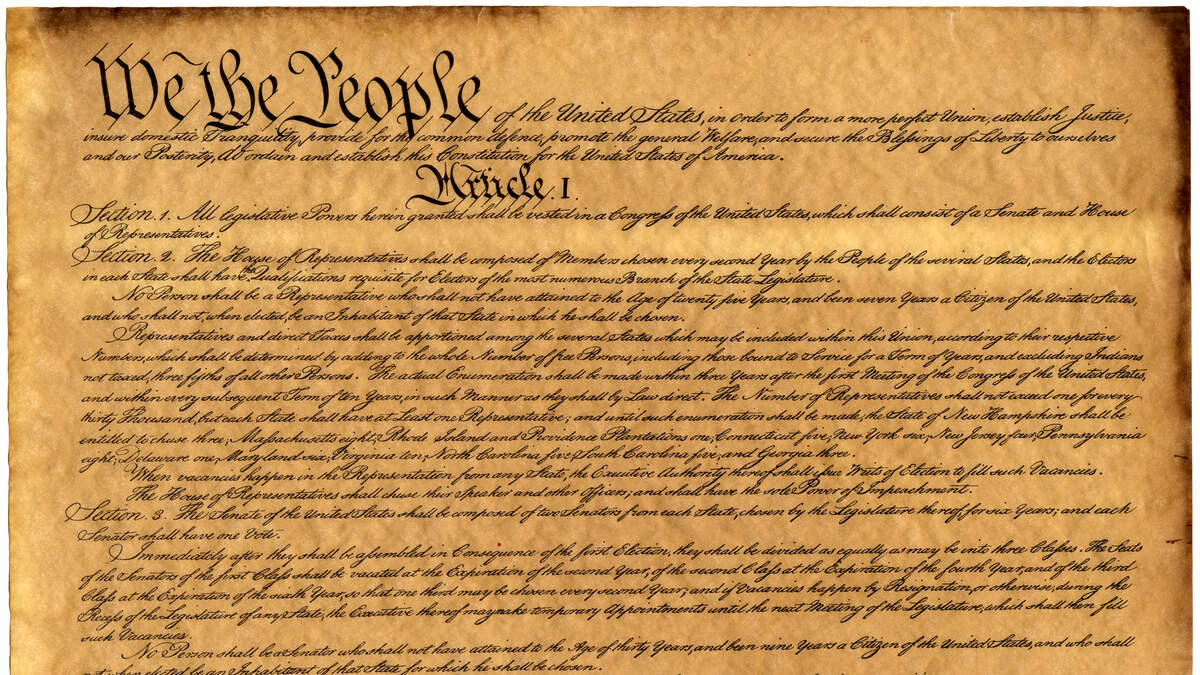 We the People of the United States, in order to form a more perfect Union, establish Justice,
insure domestic Tranquility, provide for the common defence, promote the general Welfare, and secure the Blessings of Liberty to ourselves
and our Posterity, do ordain and establish this Constitution for the United States of America.
Article. I.
Section. 1. All legislative Powers herein granted shall be vested in a Congress of the United States, which shall consist of a Senate and House
of Representatives.
Section. 2. The House of Representatives shall be composed of Members chosen every second Year by the People of the several States, and the Electors
in each State shall have the Qualifications requisite for Electors of the most numerous Branch of the State Legislature.
No Person shall be a Representative who shall not have attained to the Age of twenty five Years, and been seven Years a Citizen of the United States,
and who shall not, when elected, be an Inhabitant of that State in which he shall be chosen.
Representatives and direct Taxes shall be apportioned among the several States which may be included within this Union, according to their respective
Numbers, which shall be determined by adding to the whole Number of free Persons, including those bound to Service for a Term of Years, and excluding Indians
not taxed, three fifths of all other Persons. The actual Enumeration shall be made within three Years after the first Meeting of the Congress of the United States,
and within every subsequent Term of ten Years, in such Manner as they shall by Law direct. The Number of Representatives shall not exceed one for every
thirty Thousand, but each State shall have at Least one Representative; and until such enumeration shall be made, the State of New Hampshire shall be
entitled to chuse three, Massachusetts eight, Rhode Island and Providence Plantations one, Connecticut five, New York six, New Jersey four, Pennsylvania
eight, Delaware one, Maryland six, Virginia ten, North Carolina five, South Carolina five, and Georgia three.
When vacancies happen in the Representation from any State, the Executive Authority thereof shall issue Writs of Election to fill such Vacancies.
The House of Representatives shall chuse their Speaker and other Officers; and shall have the sole Power of Impeachment.
Section. 3. The Senate of the United States shall be composed of two Senators from each State, chosen by the Legislature thereof, for six Years; and each
Senator shall have one Vote.
Immediately after they shall be assembled in Consequence of the first Election, they shall be divided as equally as may be into three Classes. The Seats
of the Senators of the first Class shall be vacated at the Expiration of the second Year, of the second Class at the Expiration of the fourth Year, and of the third
Class at the Expiration of the sixth Year, so that one third may be chosen every second Year; and if Vacancies happen by Resignation, or otherwise, during the
Recess of the Legislature of any State, the Executive thereof may make temporary Appointments until the next Meeting of the Legislature, which shall then fill
such Vacancies.
No Person shall be a Senator who shall not have attained to the Age of thirty Years, and been nine Years a Citizen of the United States, and who shall
not, when elected, be an Inhabitant of that State for which he shall be chosen.